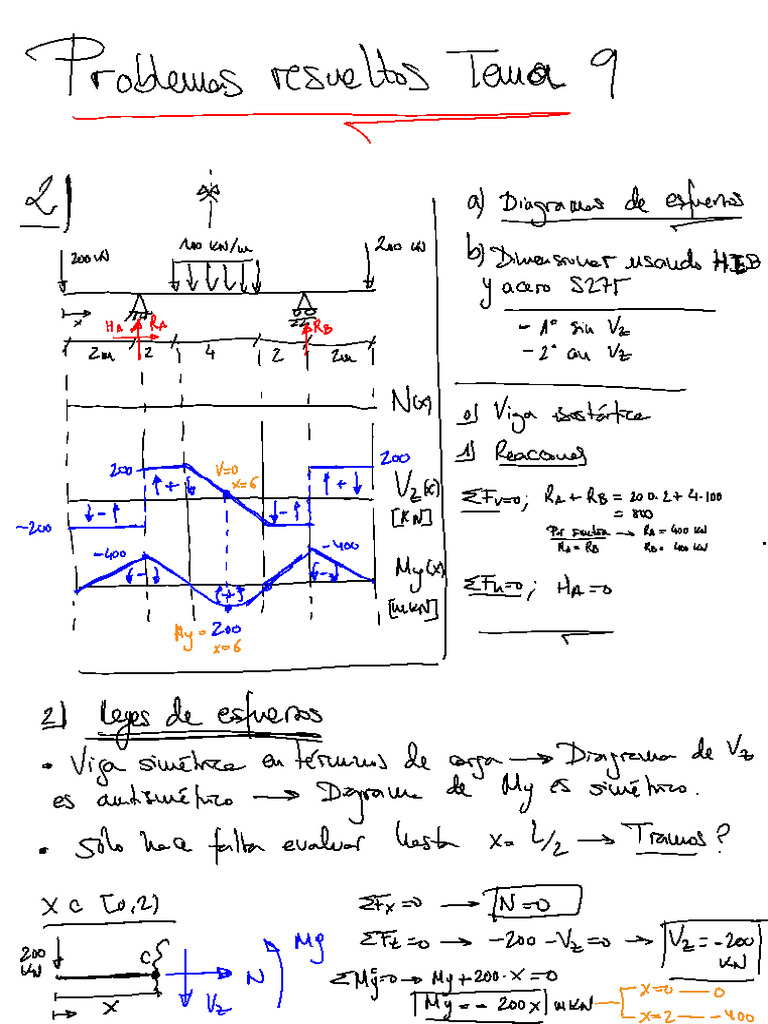 Problemas resueltos Tema 9
2)
200 kN
100 KN/m
200 KN
x
HA
RA
RB
2m
2
4
2
2m
N(x)
200
V=0
x=6
200
↑+↓
↑+↓
Vz(x)
[KN]
-200
↓-↑
↓-↑
-400
-400
(-)
(+)
(-)
My(x)
[mKN]
My = 200
x=6
a) Diagramas de esfuerzos
b) Dimensionar usando HEB
y acero S275
- 1º sin Vz
- 2º con Vz
0) Viga isostática
1) Reacciones
ΣFv=0; RA + RB = 200·2 + 4·100
= 800
Por simetría → RA = 400 KN
RA = RB RB = 400 KN
ΣFH=0; HA = 0
2) Leyes de esfuerzos
• Viga simétrica en términos de carga → Diagrama de Vz
es antisimétrico → Diagrama de My es simétrico.
• Sólo hace falta evaluar hasta x = L/2 → Tramos?
x ∈ [0,2)
200
KN
C
x
N
Vz
My
ΣFx=0 → N=0
ΣFz=0 → -200 - Vz = 0 → Vz = -200
KN
ΣMy=0 → My + 200·x = 0
My = - 200x mKN
x=0 — 0
x=2 — -400